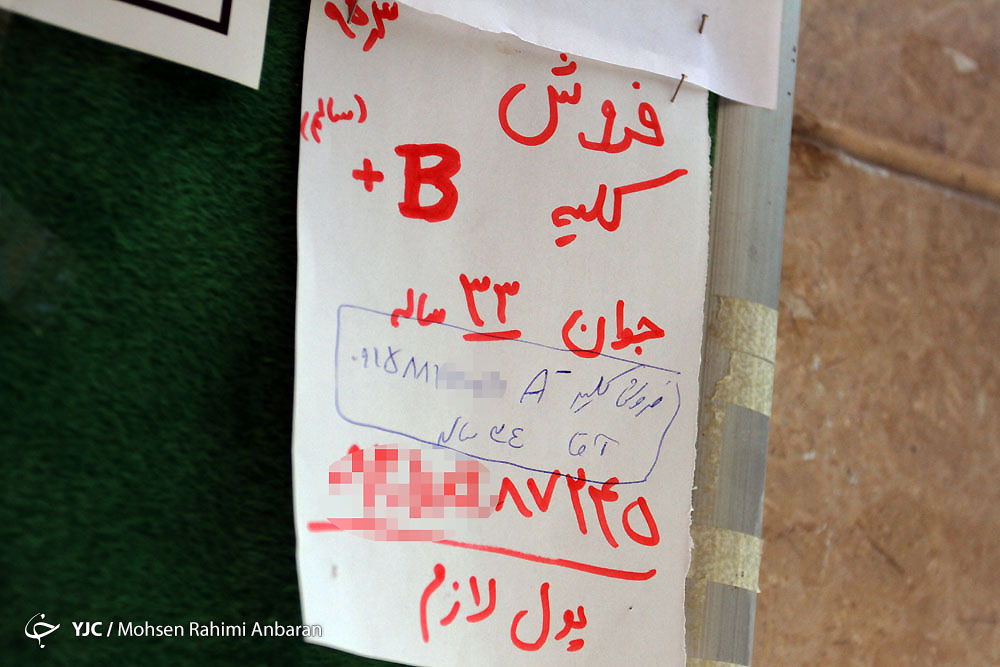 فروش
(سالم)
کلیه B +
جوان ۳۳ ساله
فروش کلیه A- ۰۹۱۵۸۸۲
۳۴ ساله
۸۷۲۴۵
پول لازم
YJC / Mohsen Rahimi Anbaran